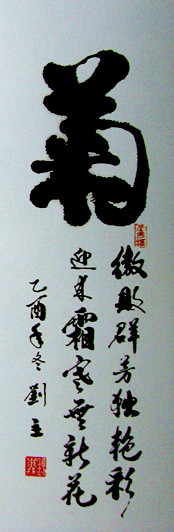 菊
傲败群芳独艳彩
迎来霜寒無新花
乙酉年冬 劉主